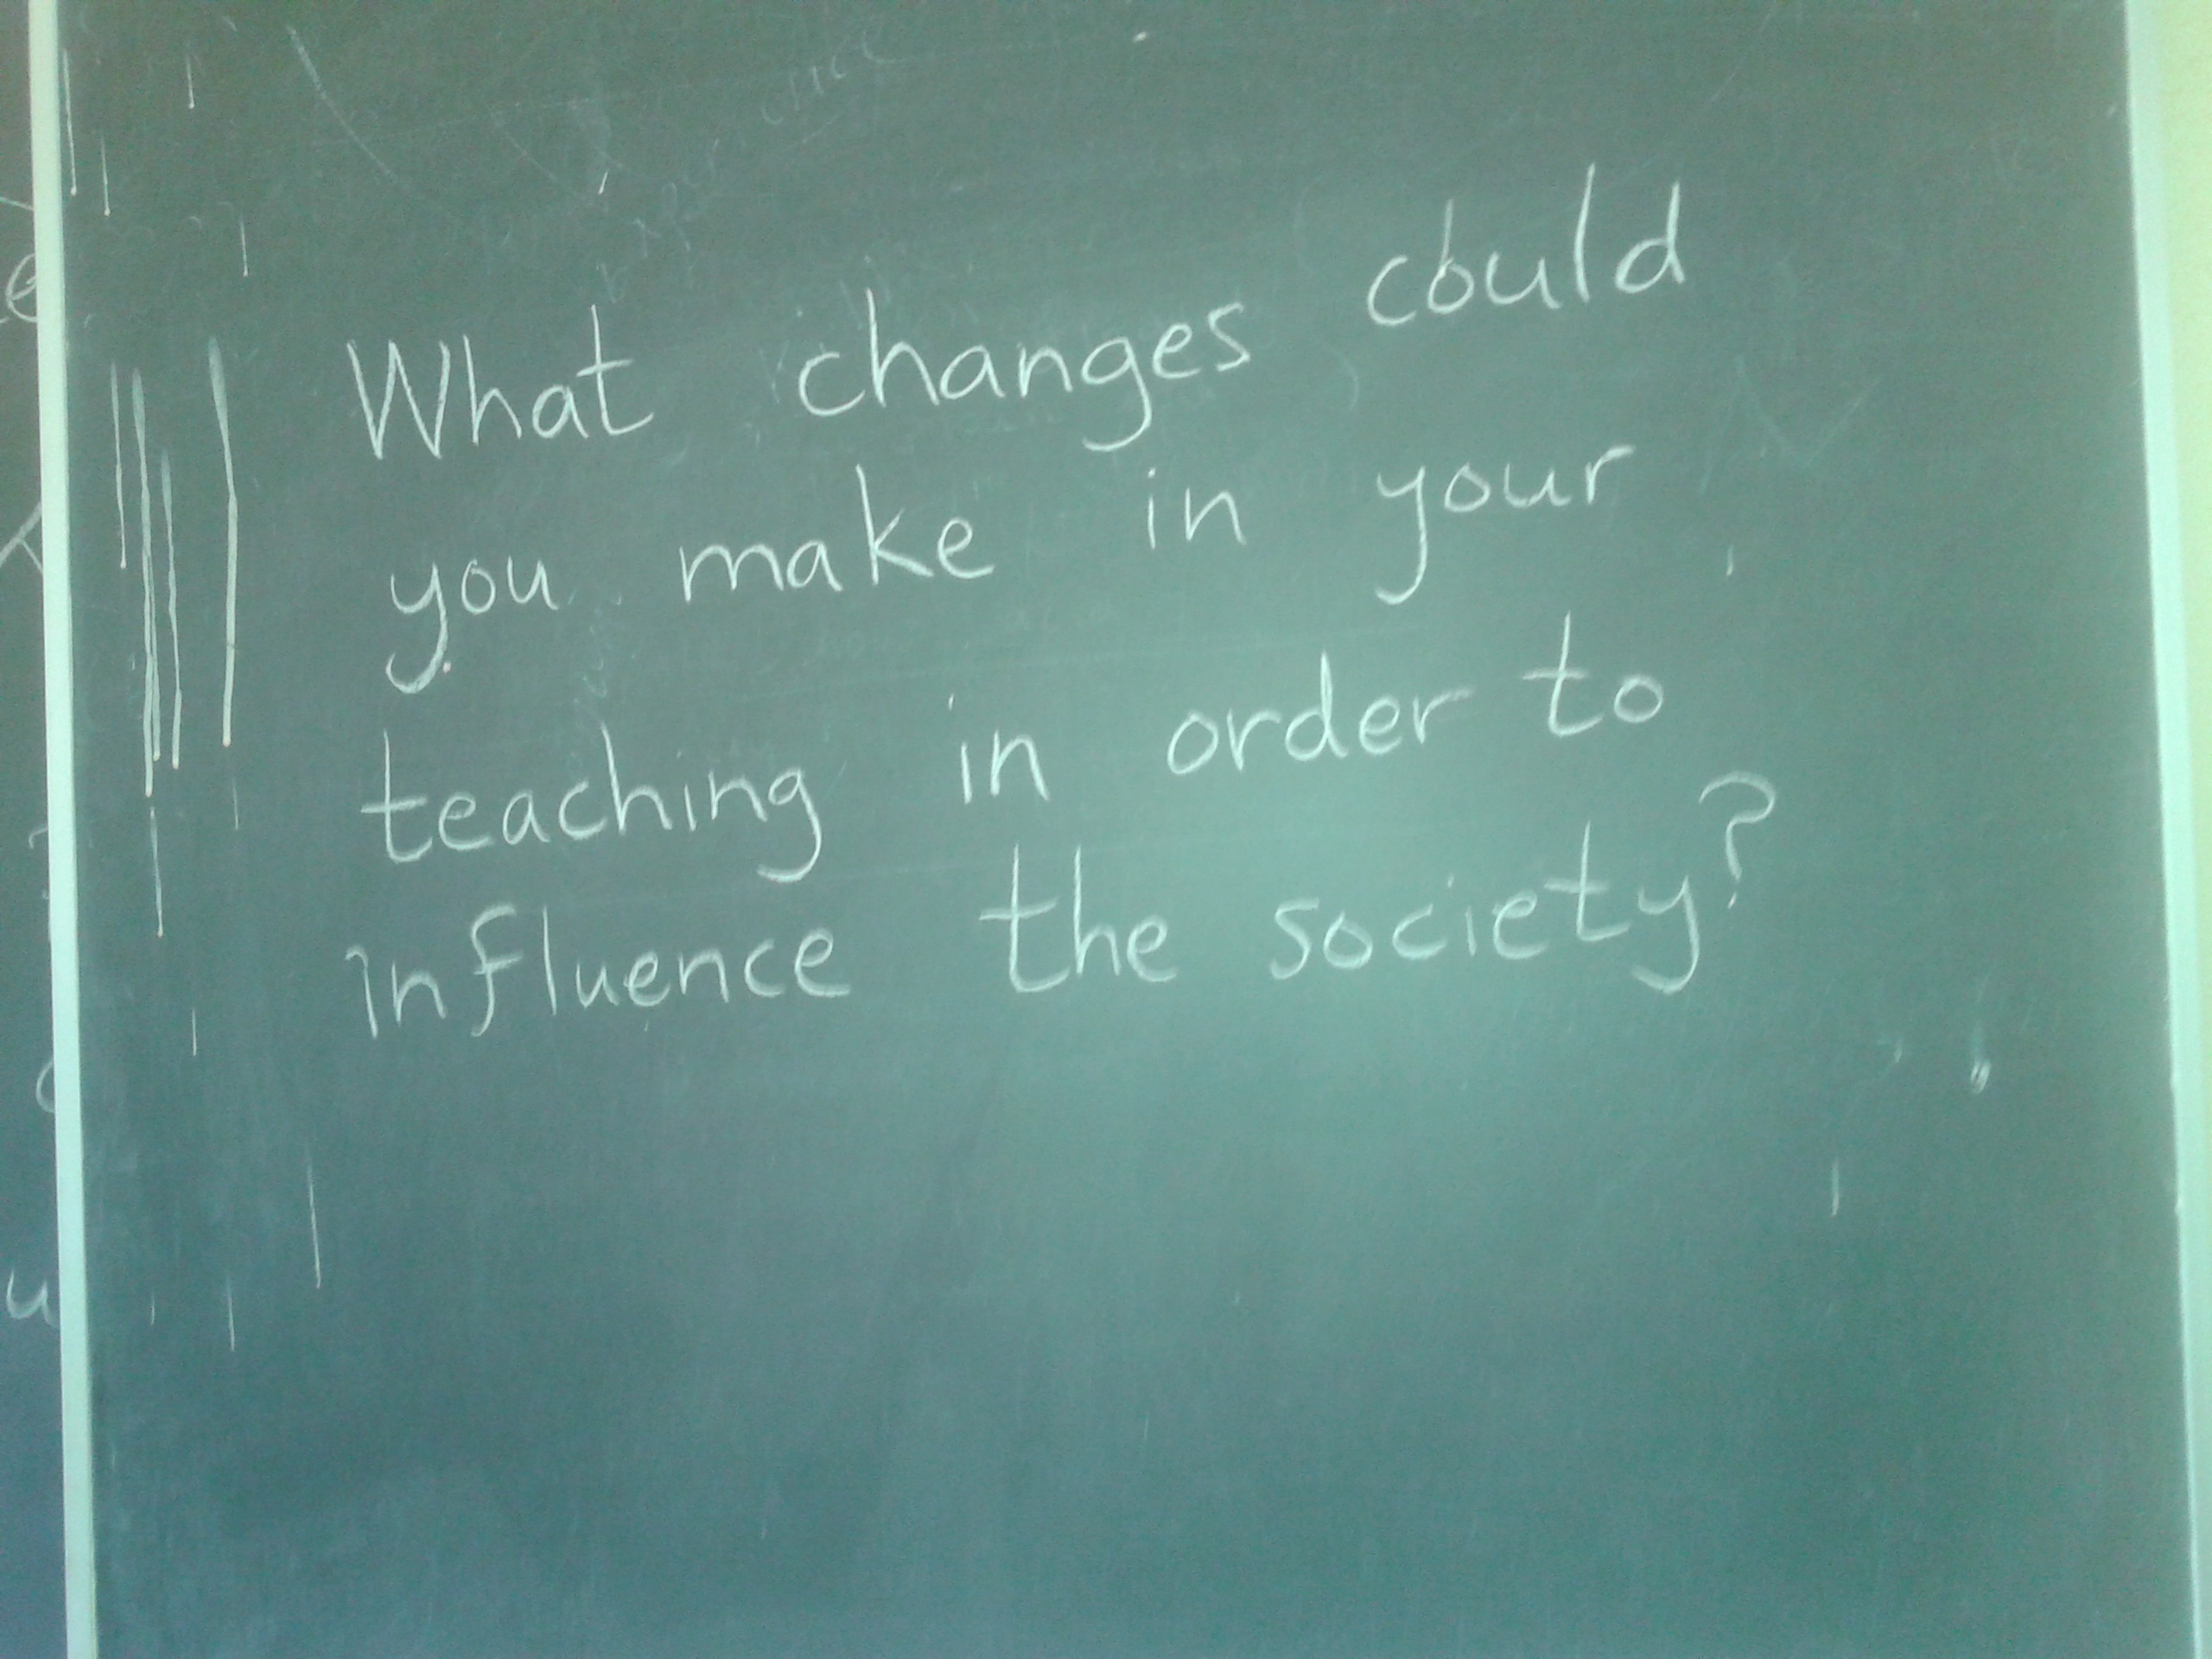 What changes could
you make in your
teaching in order to
influence the society?